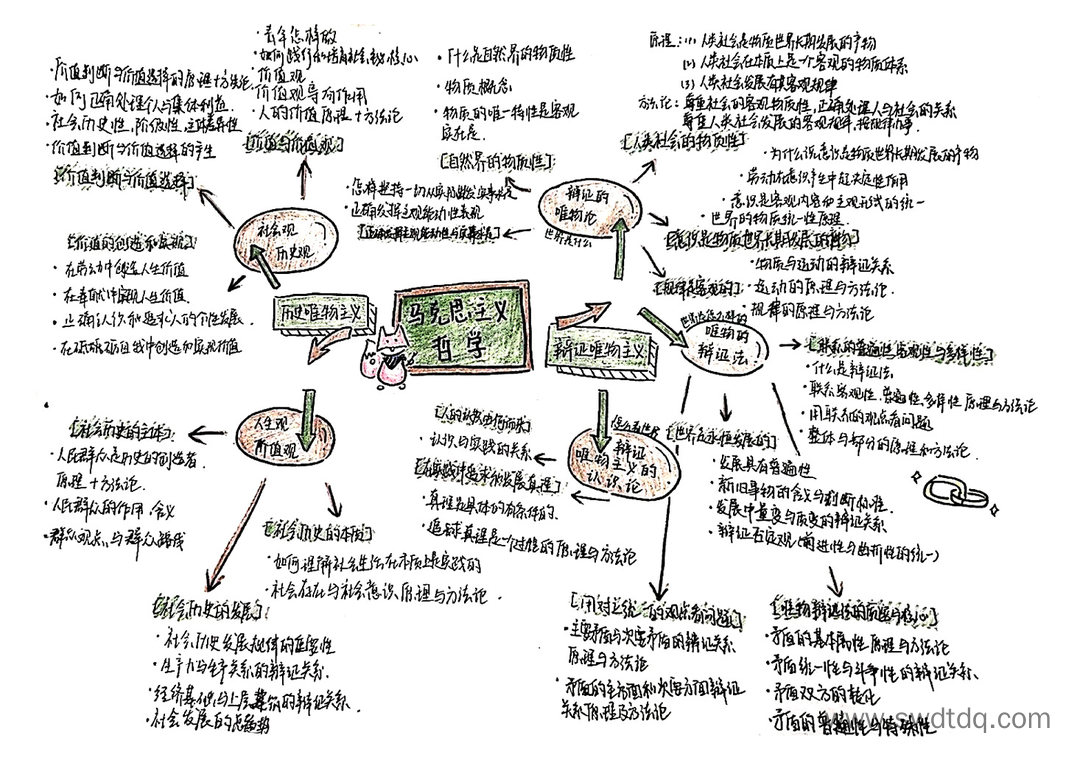 马克思主义
哲学
历史唯物主义
辩证唯物主义
社会观
历史观
·青年怎样做
·价值观
·价值观导向作用
·人的价值原理+方法论
[价值与价值观]
·价值判断与价值选择的原理+方法论
·如何正确处理个人与集体利益
·社会历史性、阶级性、主体差异性
·价值判断与价值选择的产生
[价值判断与价值选择]
[价值的创造和实现]
·在劳动中创造人生价值
·在奉献中实现人生价值
·正确认识和追求人的个性发展
·在砥砺自我中创造和实现价值
人生观
价值观
[社会历史的主体]
·人民群众是历史的创造者
原理+方法论
·人民群众的作用、含义
·群众观点与群众路线
[社会历史的本质]
·如何理解社会生活在本质上是实践的
·社会存在与社会意识原理与方法论
[社会历史的发展]
·社会历史发展规律的
·生产力与生产关系的辩证关系
·经济基础与上层建筑的辩证关系
·社会发展的总趋势
辩证的
唯物论
世界是什么
·什么是自然界的物质性
·物质概念
·物质的唯一特性是客观
实在性
[自然界的物质性]
原理：(1)人类社会是物质世界长期发展的产物
(2)人类社会在本质上是一个客观的物质体系
(3)人类社会发展有其客观规律
方法论：尊重社会的客观物质性，正确处理人与社会的关系
尊重人类社会发展的客观规律，按规律办事
[人类社会的物质性]
·怎样坚持一切从实际出发实事求是
·正确发挥主观能动性表现
·为什么说意识是物质世界长期发展的产物
·劳动在意识产生中起决定性作用
·意识是客观内容和主观形式的统一
·世界的物质统一性原理
[意识是物质世界长期发展的产物]
·物质与运动的辩证关系
[规律是客观的]
·运动的原理与方法论
·规律的原理与方法论
唯物的
辩证法
[联系的普遍性客观性与多样性]
·什么是辩证法
·联系客观性、普遍性、多样性原理与方法论
·用联系的观点看问题
·整体与部分的原理和方法论
[世界是永恒发展的]
·发展具有普遍性
·新旧事物的含义与判断标准
·发展中量变与质变的辩证关系
·辩证否定观(前进性与曲折性的统一)
[唯物辩证法的实质与核心]
·矛盾的基本属性原理与方法论
·矛盾统一性与斗争性的辩证关系
·矛盾双方的转化
·矛盾的普遍性与特殊性
[用对立统一的观点看问题]
·主要矛盾与次要矛盾的辩证关系
原理与方法论
·矛盾的主方面和次要方面辩证
关系原理及方法论
辩证
唯物主义的
认识论
[人的认识从何而来]
·认识与实践的关系
[在实践中追求和发展真理]
·真理是具体的有条件的
·追求真理是一个过程的原理与方法论
www.swdtdq.com